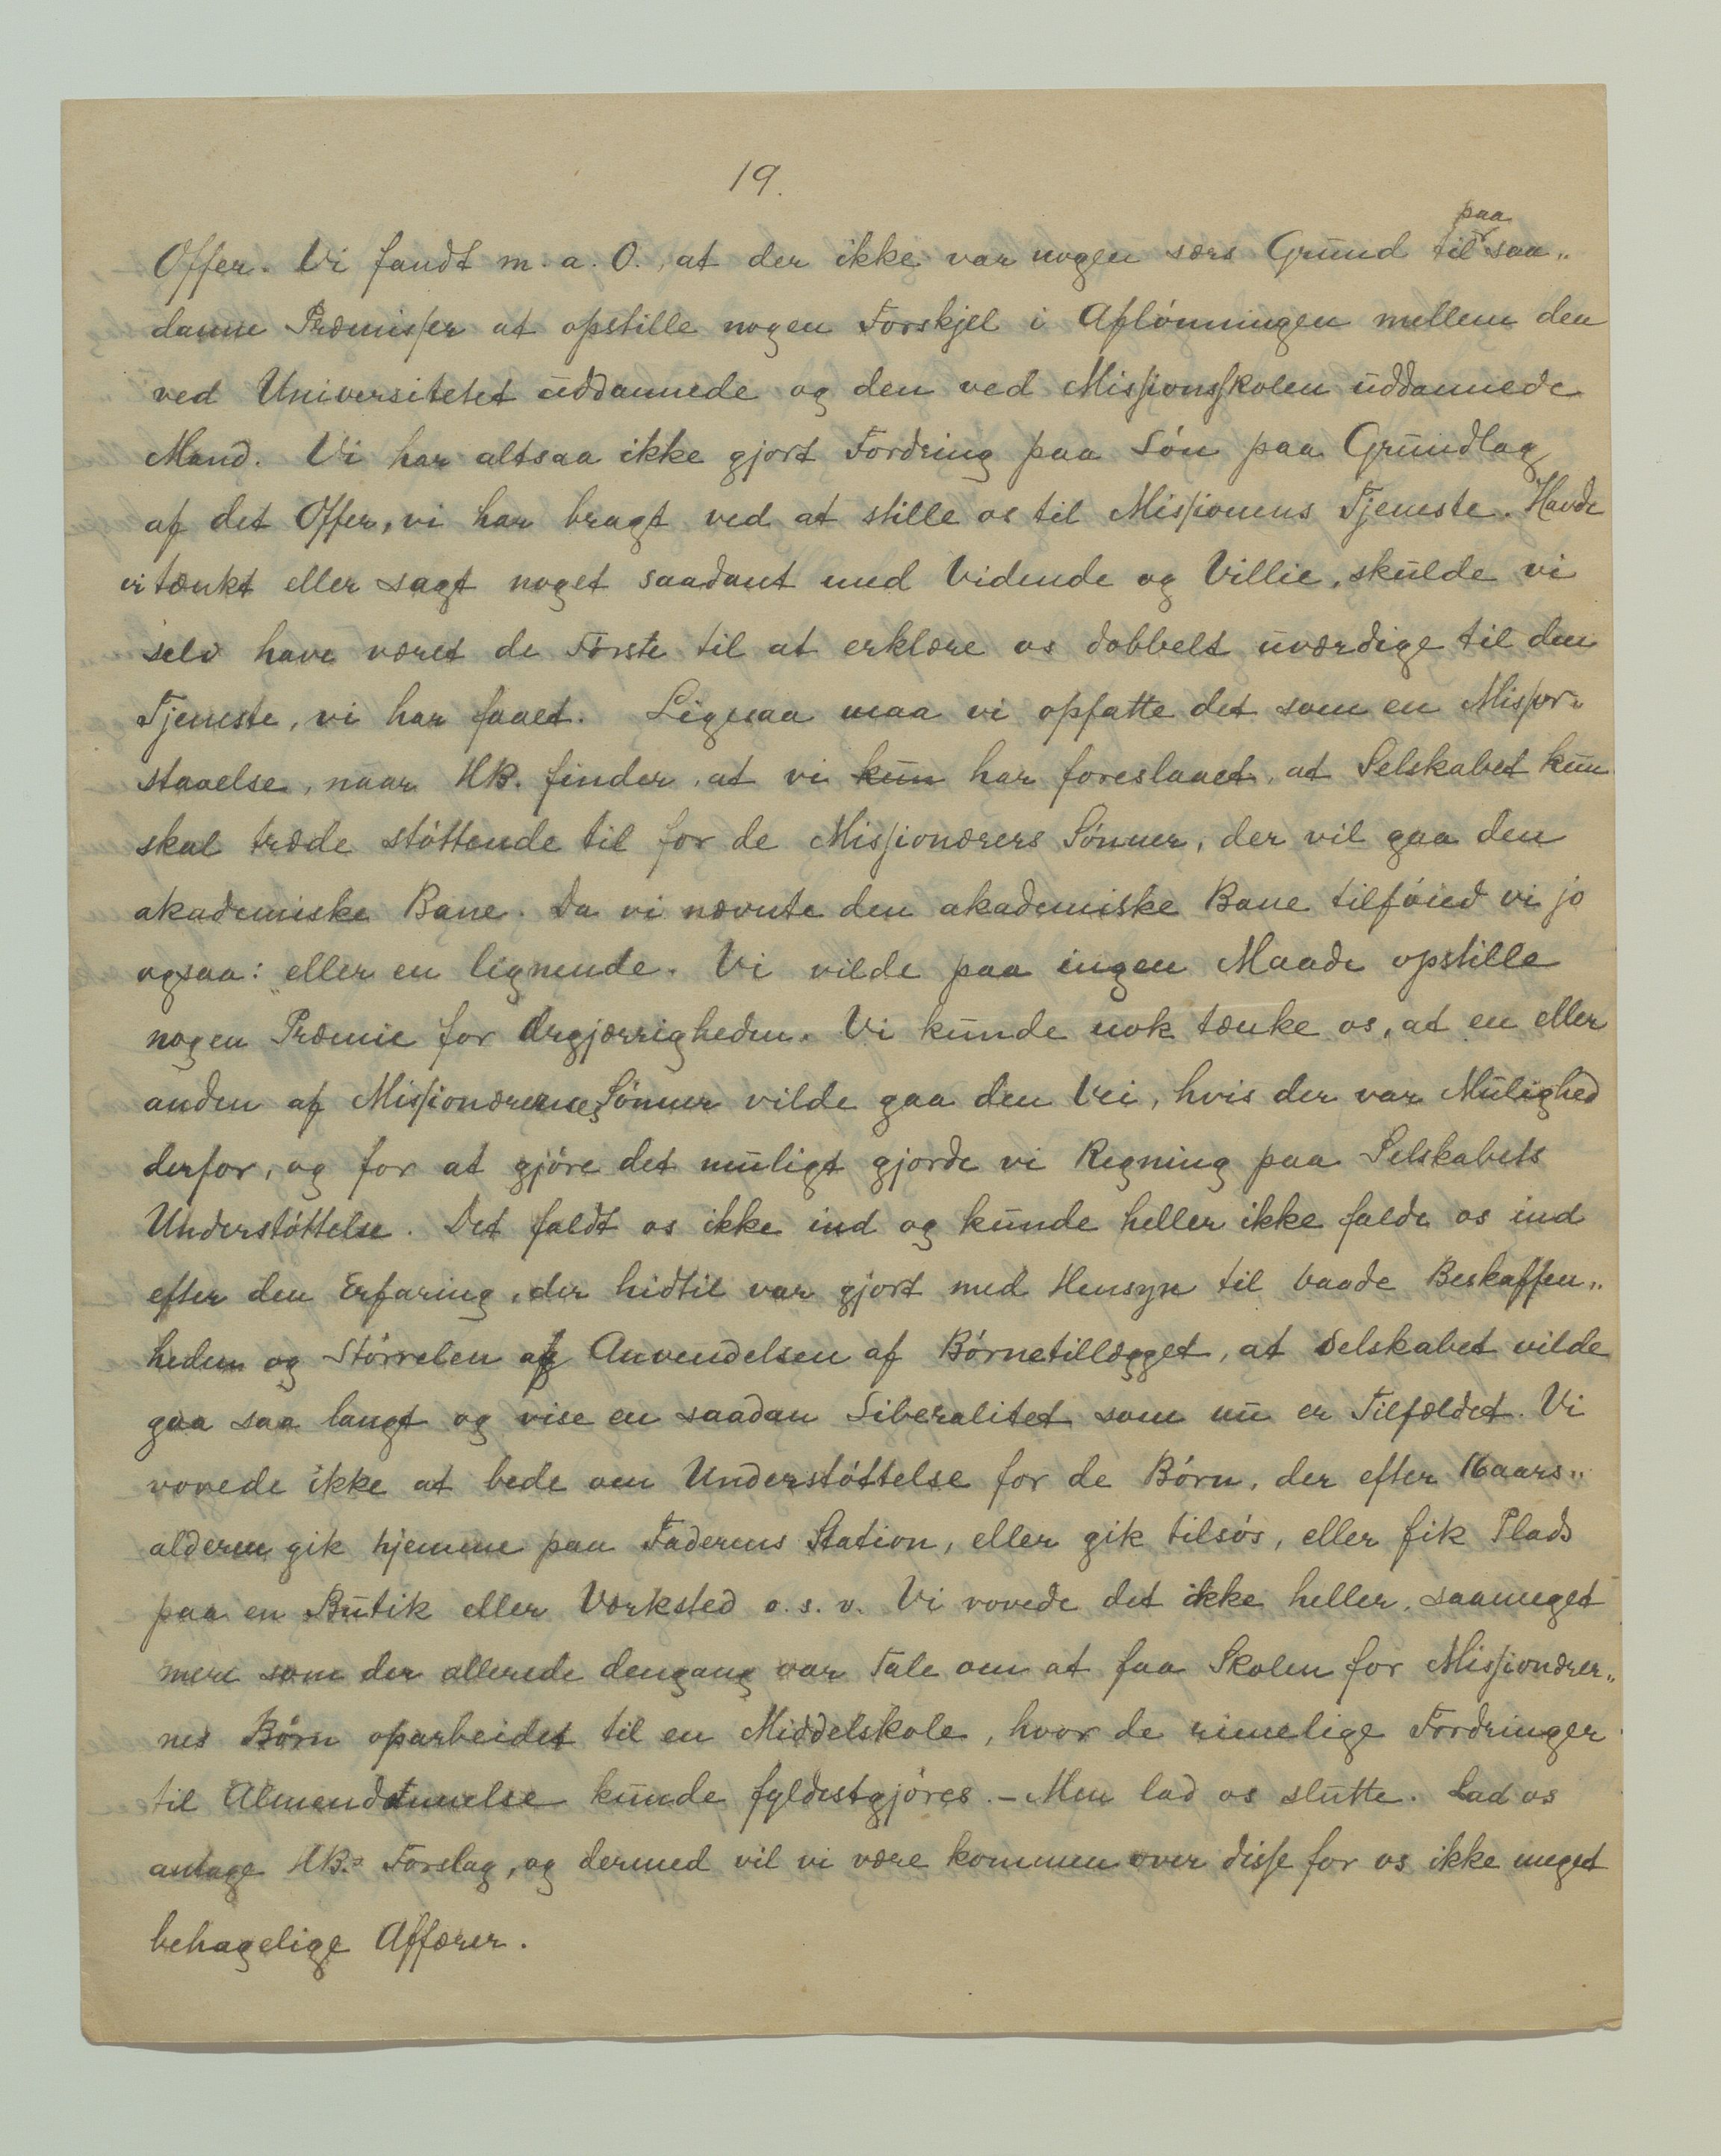 19.
Offer. Vi fandt m. a. O., at der ikke var nogen særs Grund til paa saa„
danne Præmisser at opstille nogen Forskjel i Aflønningen mellem den
ved Universitetet uddannede og den ved Missionsskolen uddannede
Mand. Vi har altsaa ikke gjort Fordring paa Løn paa Grundlag
af det Offer, vi har bragt ved at stille os til Missionens Tjeneste. Havde
vi tænkt eller sagt noget saadant med Vidende og Villie, skulde vi
selv have været de Første til at erklære os dobbelt uværdige til den
Tjeneste, vi har faaet. Ligesaa maa vi opfatte det som en Misfor„
staaelse, naar HB. finder, at vi kun har foreslaaet, at Selskabet kun
skal træde støttende til for de Missionærers Sønner, der vil gaa den
akademiske Bane. Da vi nævnte den akademiske Bane tilføied vi jo
ogsaa: eller en lignende. Vi vilde paa ingen Maade opstille
nogen Præmie for Ærgjærrigheden. Vi kunde nok tænke os, at en eller
anden af Missionærernes Sønner vilde gaa den Vei, hvis der var Mulighed
derfor, og for at gjøre det muligt gjorde vi Regning paa Selskabets
Understøttelse. Det faldt os ikke ind og kunde heller ikke falde os ind
efter den Erfaring, der hidtil var gjort med Hensyn til baade Beskaffen„
heden og Størrelen af Anvendelsen af Børnetillægget, at Selskabet vilde
gaa saa langt og vise en saadan Liberalitet som nu er Tilfældet. Vi
vovede ikke at bede om Understøttelse for de Børn, der efter 16aars„
alderen gik hjemme paa Faderens Station, eller gik tilsøs, eller fik Plads
paa en Butik eller Værksted o. s. v. Vi vovede det ikke heller, saameget
mere som der allerede dengang var Tale om at faa Skolen for Missionærer„
nes Børn oparbeidet til en Middelskole, hvor de rimelige Fordringer
til Almendannelse kunde fyldestgjøres. – Men lad os slutte. Lad os
antage HB.s Forslag, og dermed vil vi være kommen over disse for os ikke meget
behagelige Affærer.